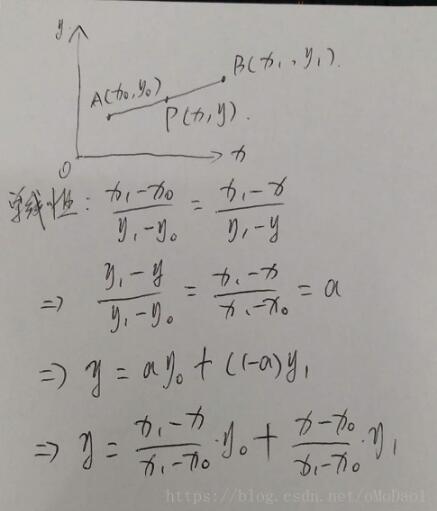 y
A(x₀,y₀)
B(x₁,y₁).
P(x,y).
O
x
单线性: (x₁-x₀)/(y₁-y₀) = (x₁-x)/(y₁-y)
=> (y₁-y)/(y₁-y₀) = (x₁-x)/(x₁-x₀) = a
=> y = ay₀ + (1-a)y₁
=> y = (x₁-x)/(x₁-x₀)·y₀ + (x-x₀)/(x₁-x₀)·y₁
https://blog.csdn.net/oMoDao1